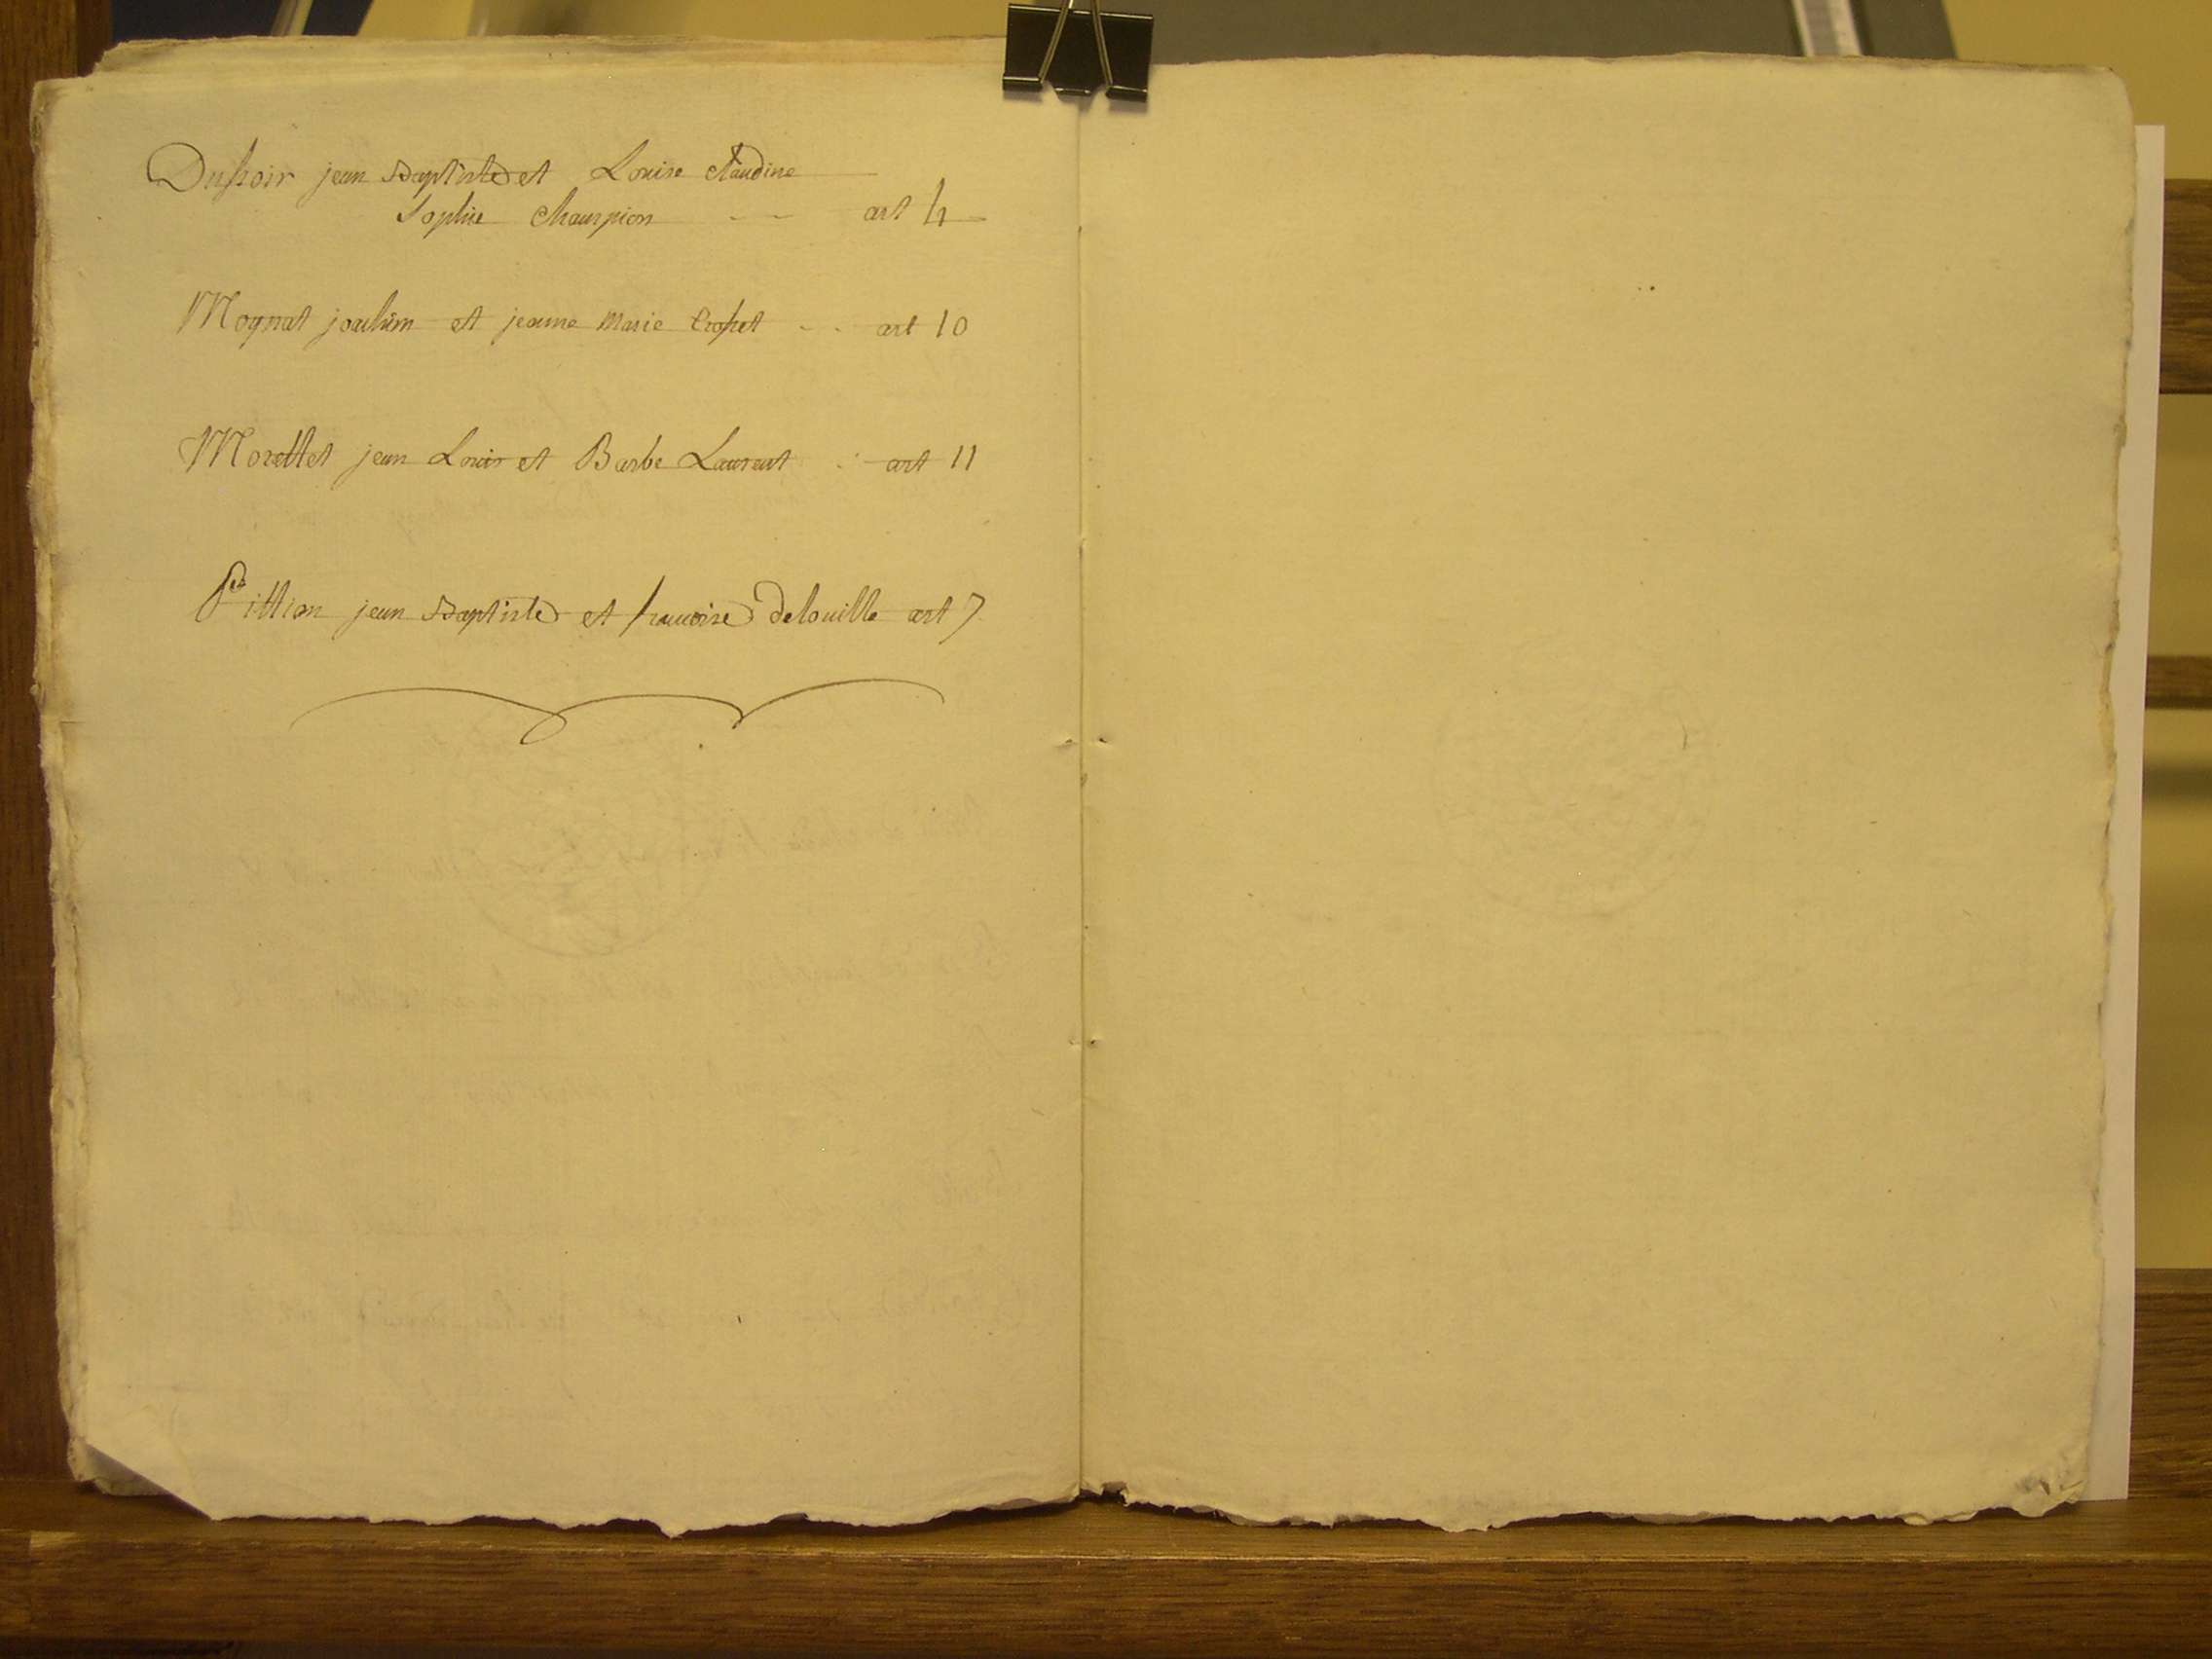 Duhoir jean Baptiste et Louise Claudine
Sophie Champion - - art 4
Mognat joachim et jeanne Marie - - art 10
Morettet jean Louis et Barbe Laurent - art 11
Pittion jean Baptiste et francoise delouille art 7